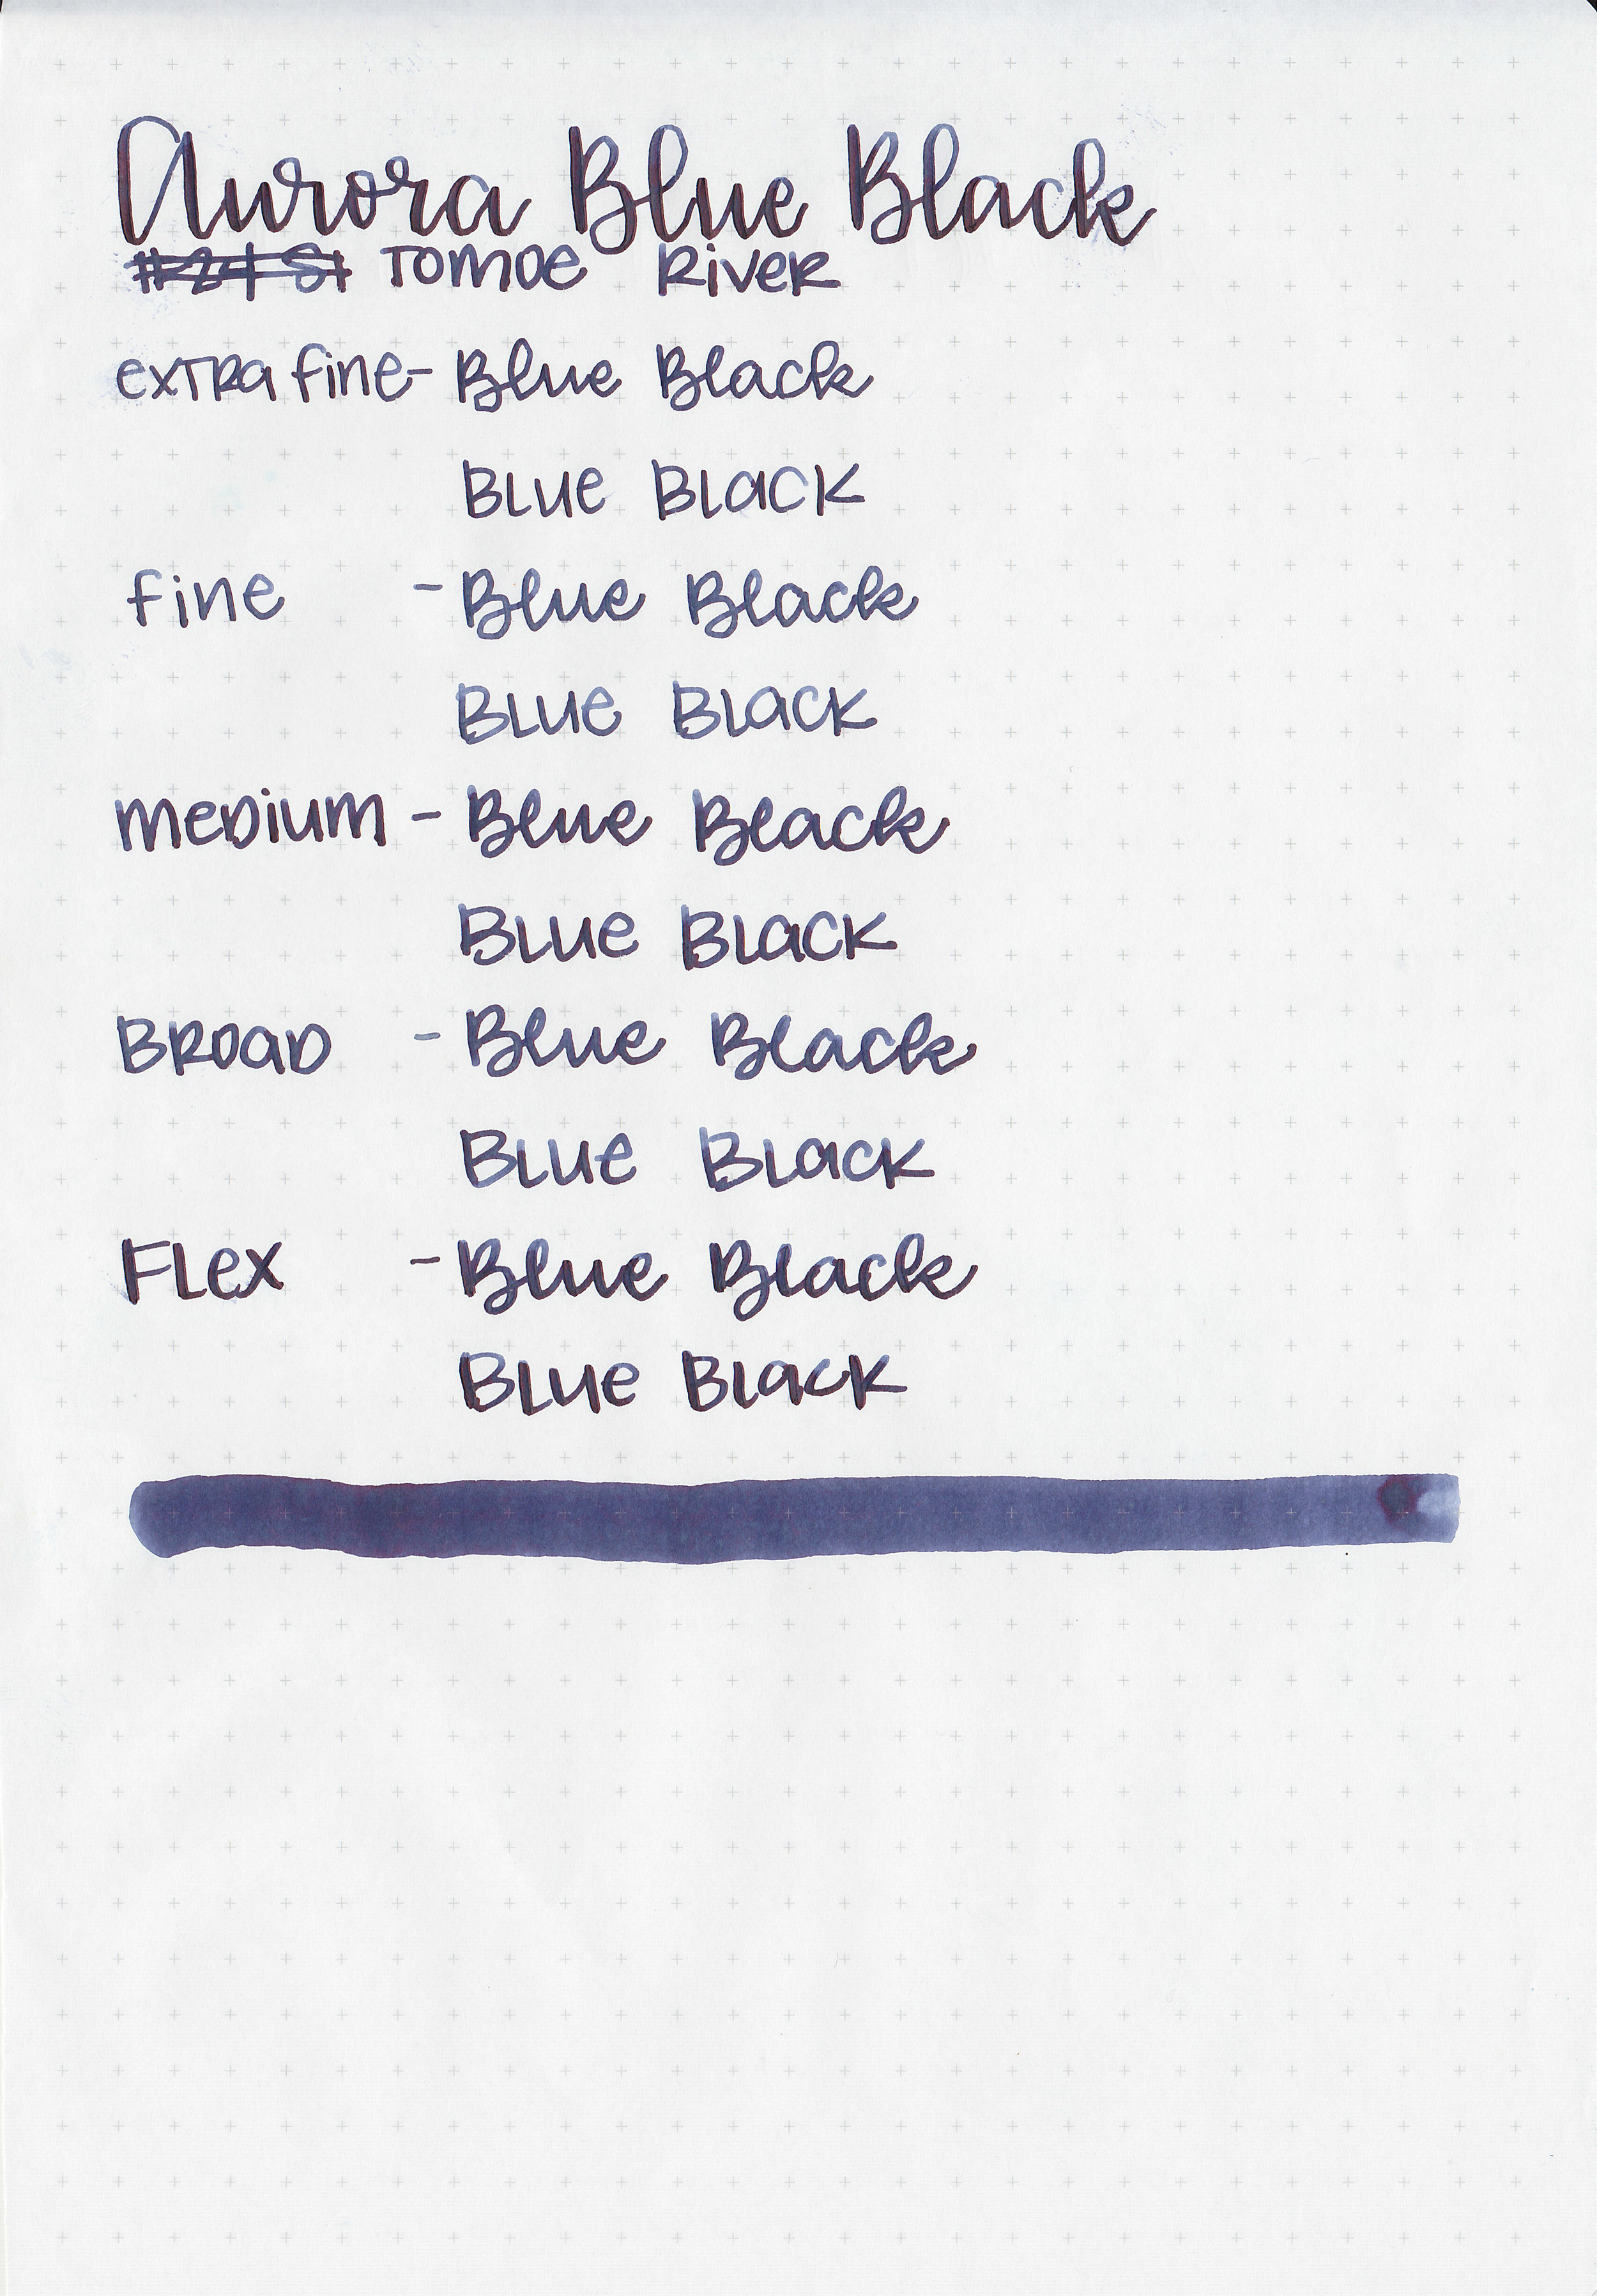 Aurora Blue Black
Tomoe River
extra fine - Blue Black
Blue Black
fine - Blue Black
Blue Black
medium - Blue Black
Blue Black
Broad - Blue Black
Blue Black
Flex - Blue Black
Blue Black